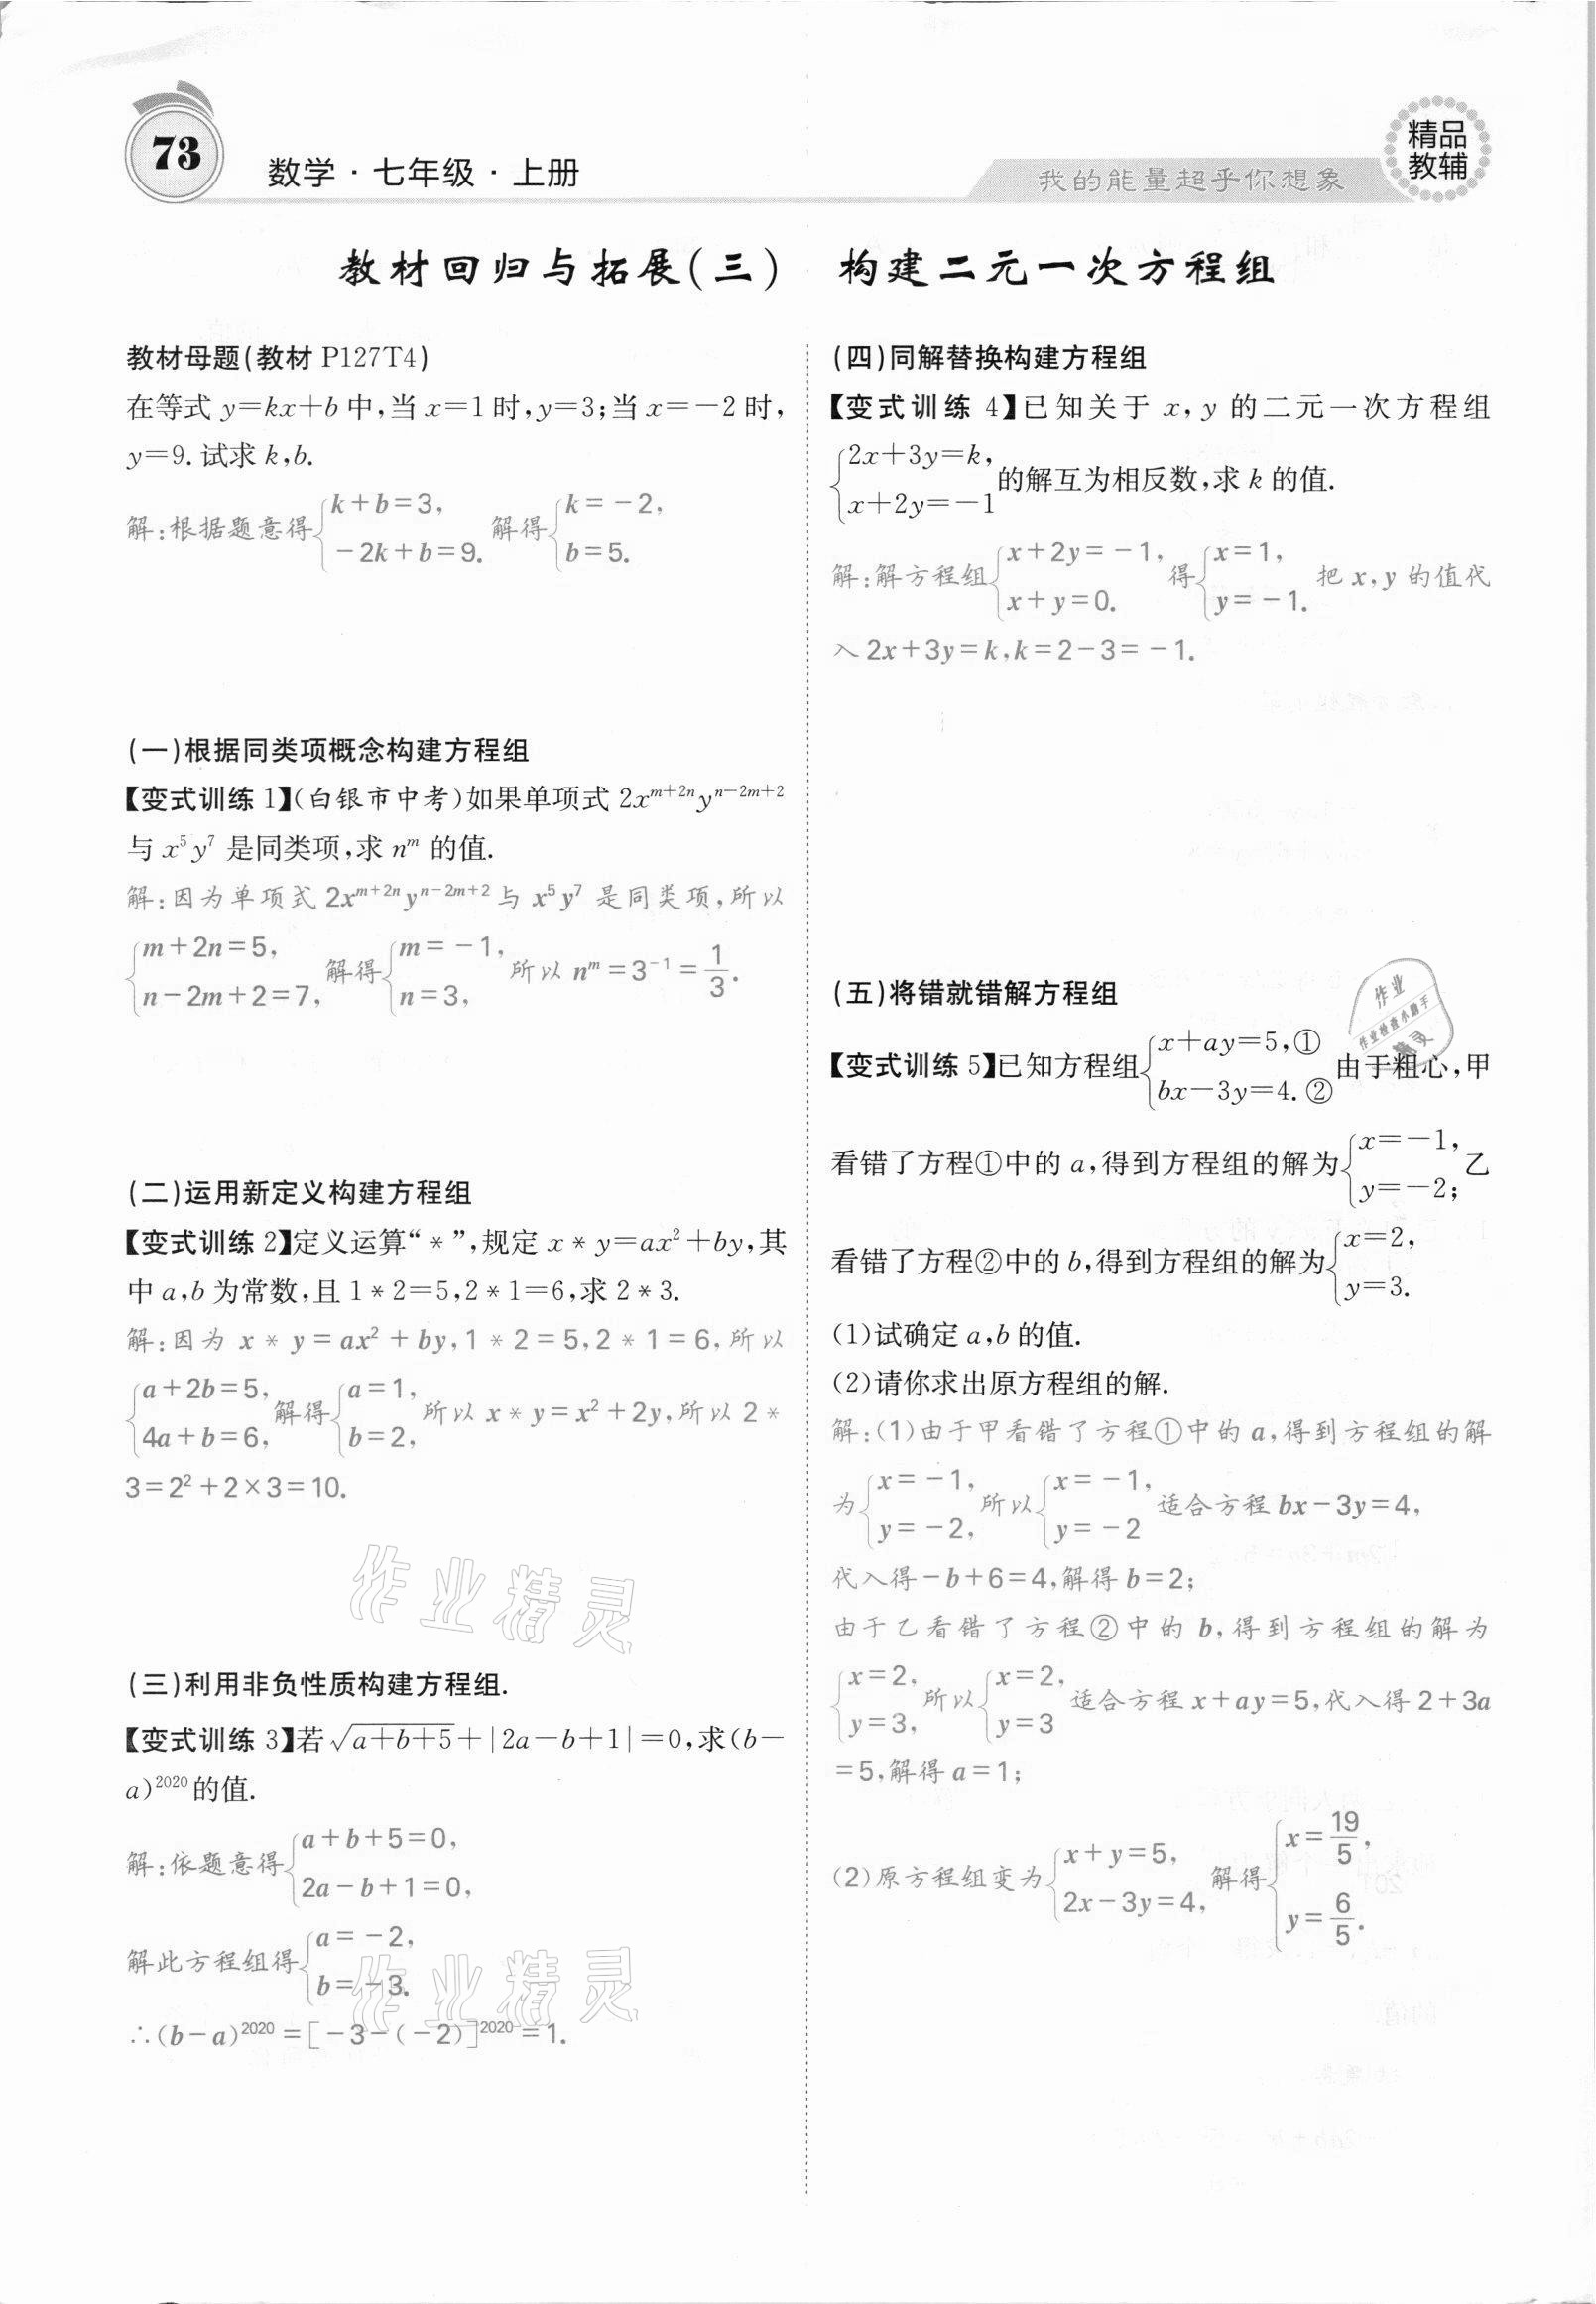 73
数学·七年级·上册
我的能量超乎你想象
精品
教辅
教材回归与拓展(三) 构建二元一次方程组
教材母题(教材 P127T4)
在等式 y=kx+b 中,当 x=1 时,y=3;当 x=-2 时,
y=9. 试求 k,b.
解:根据题意得{k+b=3, -2k+b=9. 解得{k=-2, b=5.
(一)根据同类项概念构建方程组
【变式训练 1】(白银市中考)如果单项式 2x^{m+2n}y^{n-2m+2}
与 x⁵y⁷ 是同类项,求 n^m 的值.
解:因为单项式 2x^{m+2n}y^{n-2m+2}与 x⁵y⁷ 是同类项,所以
{m+2n=5, n-2m+2=7, 解得{m=-1, n=3, 所以 n^m=3⁻¹=1/3.
(二)运用新定义构建方程组
【变式训练 2】定义运算“*”,规定 x*y=ax²+by,其
中 a,b 为常数,且 1*2=5,2*1=6,求 2*3.
解:因为 x*y=ax²+by,1*2=5,2*1=6,所以
{a+2b=5, 4a+b=6, 解得{a=1, b=2, 所以 x*y=x²+2y,所以 2*
3=2²+2×3=10.
作业精灵
(三)利用非负性质构建方程组.
【变式训练 3】若√(a+b+5)+|2a-b+1|=0,求(b-
a)²⁰²⁰的值.
解:依题意得{a+b+5=0, 2a-b+1=0,
解此方程组得{a=-2, b=-3.
作业精灵
∴(b-a)²⁰²⁰=[-3-(-2)]²⁰²⁰=1.
(四)同解替换构建方程组
【变式训练 4】已知关于 x,y 的二元一次方程组
{2x+3y=k, x+2y=-1 的解互为相反数,求 k 的值.
解:解方程组{x+2y=-1, x+y=0. 得{x=1, y=-1. 把 x,y 的值代
入 2x+3y=k,k=2-3=-1.
(五)将错就错解方程组
作业
作业检查小助手
精灵
【变式训练 5】已知方程组{x+ay=5,① bx-3y=4.② 由于粗心,甲
看错了方程①中的 a,得到方程组的解为{x=-1, y=-2; 乙
看错了方程②中的 b,得到方程组的解为{x=2, y=3.
(1)试确定 a,b 的值.
(2)请你求出原方程组的解.
解:(1)由于甲看错了方程①中的 a,得到方程组的解
为{x=-1, y=-2, 所以{x=-1, y=-2 适合方程 bx-3y=4,
代入得-b+6=4,解得 b=2;
由于乙看错了方程②中的 b,得到方程组的解为
{x=2, y=3, 所以{x=2, y=3 适合方程 x+ay=5,代入得 2+3a
=5,解得 a=1;
(2)原方程组变为{x+y=5, 2x-3y=4, 解得{x=19/5, y=6/5.